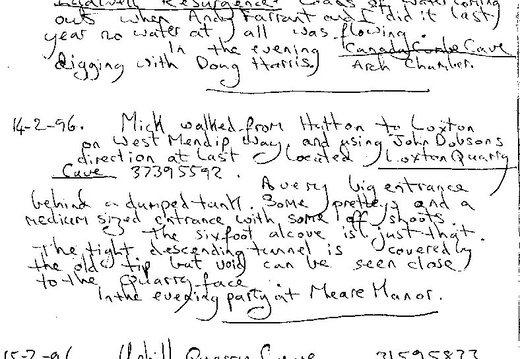 Ludwell Resurgence. Loads of water coming
out when Andy Farrant and I did it last
year no water at all was flowing.
In the evening Canada Combe Cave
digging with Doug Harris. Arch Chamber.
14-2-96. Mick walked from Hutton to Loxton
on West Mendip Way, and using John Dobsons
direction at last located Loxton Quarry
Cave 37395592.
A very big entrance
behind a dumped tank. Some prettys and a
medium sized entrance with some off shoots.
The sixfoot alcove is just that.
The tight descending tunnel is covered by
the old tip but void can be seen close
to the quarry face.
In the evening party at Meare Manor.
15-2-96 Uphill Quarry Cave 31595833